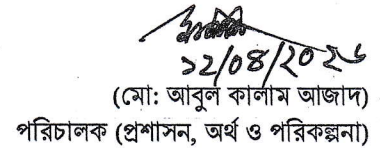 ১২/০৪/২০২৬
(মো: আবুল কালাম আজাদ)
পরিচালক (প্রশাসন, অর্থ ও পরিকল্পনা)